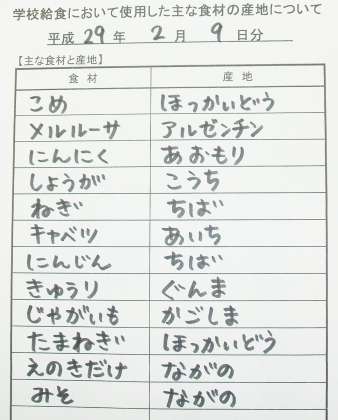 学校給食において使用した主な食材の産地について
平成 29 年 2 月 9 日分
【主な食材と産地】
食材 産地
こめ ほっかいどう
メルルーサ アルゼンチン
にんにく あおもり
しょうが こうち
ねぎ ちば
キャベツ あいち
にんじん ちば
きゅうり ぐんま
じゃがいも かごしま
たまねぎ ほっかいどう
えのきだけ ながの
みそ ながの